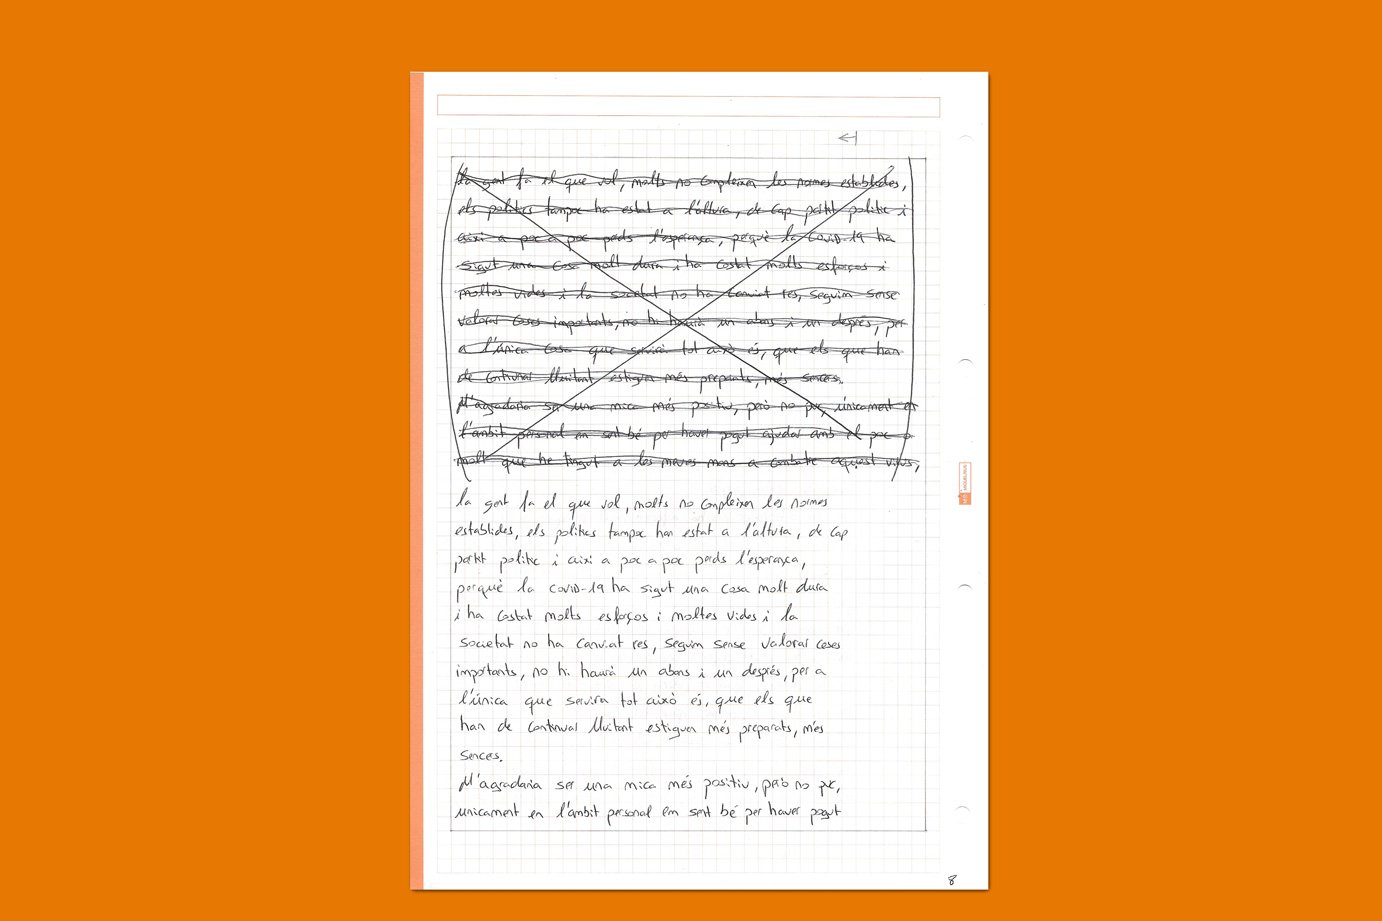 la gent fa el que vol, molts no conpleixen les normes establides,
els politics tampoc ha estat a l'altura, de cap partit politic i
aixi a poc a poc perds l'esperança, perquè la COVID-19 ha
sigut una cosa molt dura i ha costat molts esforços i
moltes vides i la societat no ha canviat res, seguim sense
valorar coses importants, no hi haurà un abans i un després, per
a l'única cosa que servirà tot això és, que els que han
de continuar lluitant estiguen més preparats, més sencers.
M'agradaria ser una mica més positiu, però no puc, únicament en
l'ambit personal em sent bé per haver pogut ajudar amb el poc o
molt que he tingut a les meves mans a combatre aquest virus,
la gent fa el que vol, molts no conpleixen les normes
establides, els politics tampoc han estat a l'altura, de cap
partit politic i aixi a poc a poc perds l'esperança,
perquè la COVID-19 ha sigut una cosa molt dura
i ha costat molts esforços i moltes vides i la
societat no ha canviat res, seguim sense valorar coses
importants, no hi haurà un abans i un després, per a
l'única que servira tot això és, que els que
han de continuar lluitant estiguen més preparats, més
sencers.
M'agradaria ser una mica més positiu, però no puc,
unicament en l'àmbit personal em sent bé per haver pogut
MIQUELRIUS
8